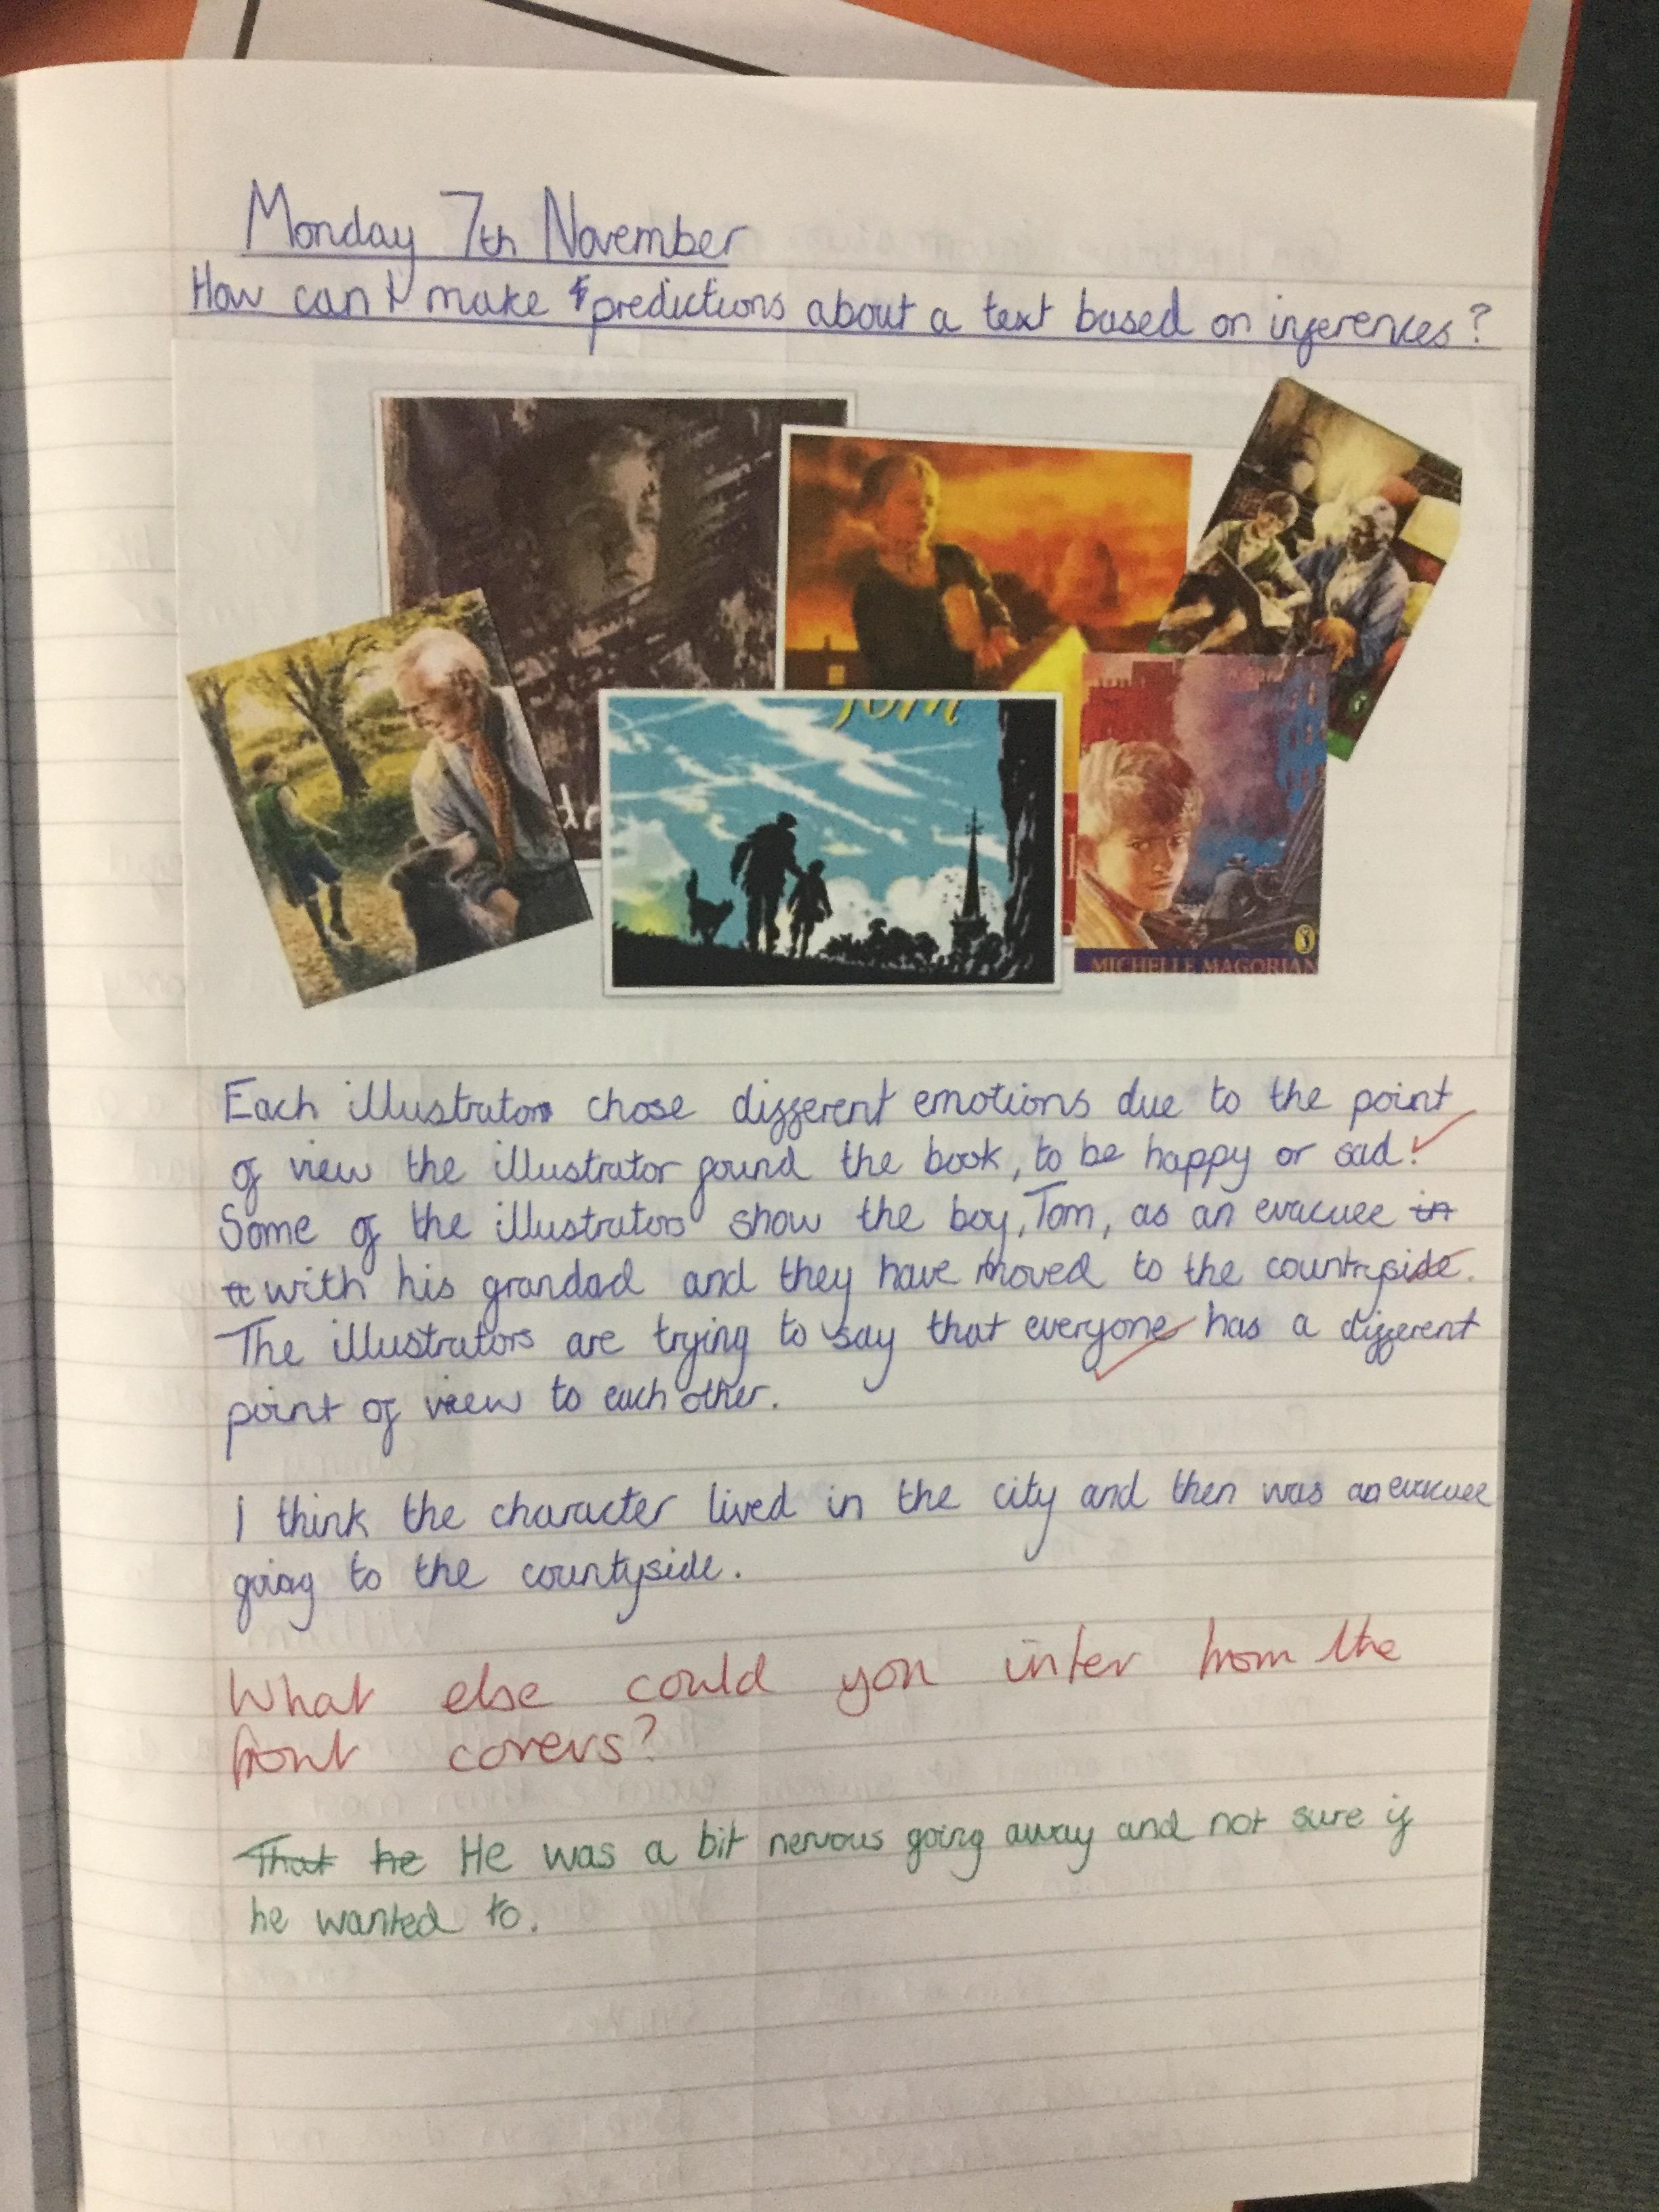 Monday 7th November
How can I make predictions about a text based on inferences?
Tom
MICHELLE MAGORIAN
Each illustrator chose different emotions due to the point
of view the illustrator found the book, to be happy or sad.
Some of the illustrators show the boy, Tom, as an evacuee in
with his grandad and they have moved to the countryside.
The illustrators are trying to say that everyone has a different
point of view to each other.
I think the character lived in the city and then was an evacuee
going to the countyside.
What else could you infer from the
front covers?
That he He was a bit nervous going away and not sure if
he wanted to.